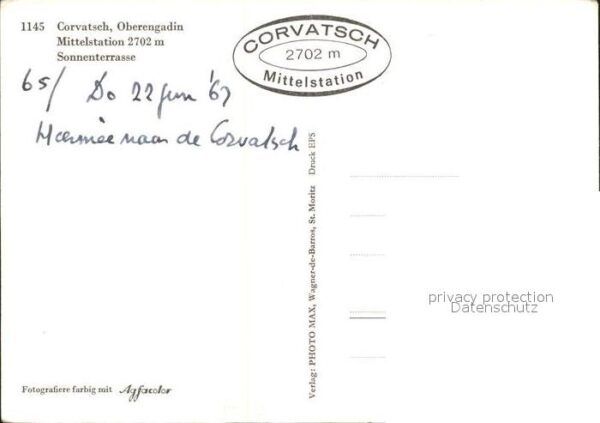 1145 Corvatsch, Oberengadin
Mittelstation 2702 m
Sonnenterrasse
CORVATSCH
2702 m
Mittelstation
65/ Do 22 jun '67
Hiermee naar de Corvatsch
Verlag: PHOTO MAX, Wagner-de-Barros, St. Moritz Druck EPS
privacy protection
Datenschutz
Fotografiere farbig mit Agfacolor